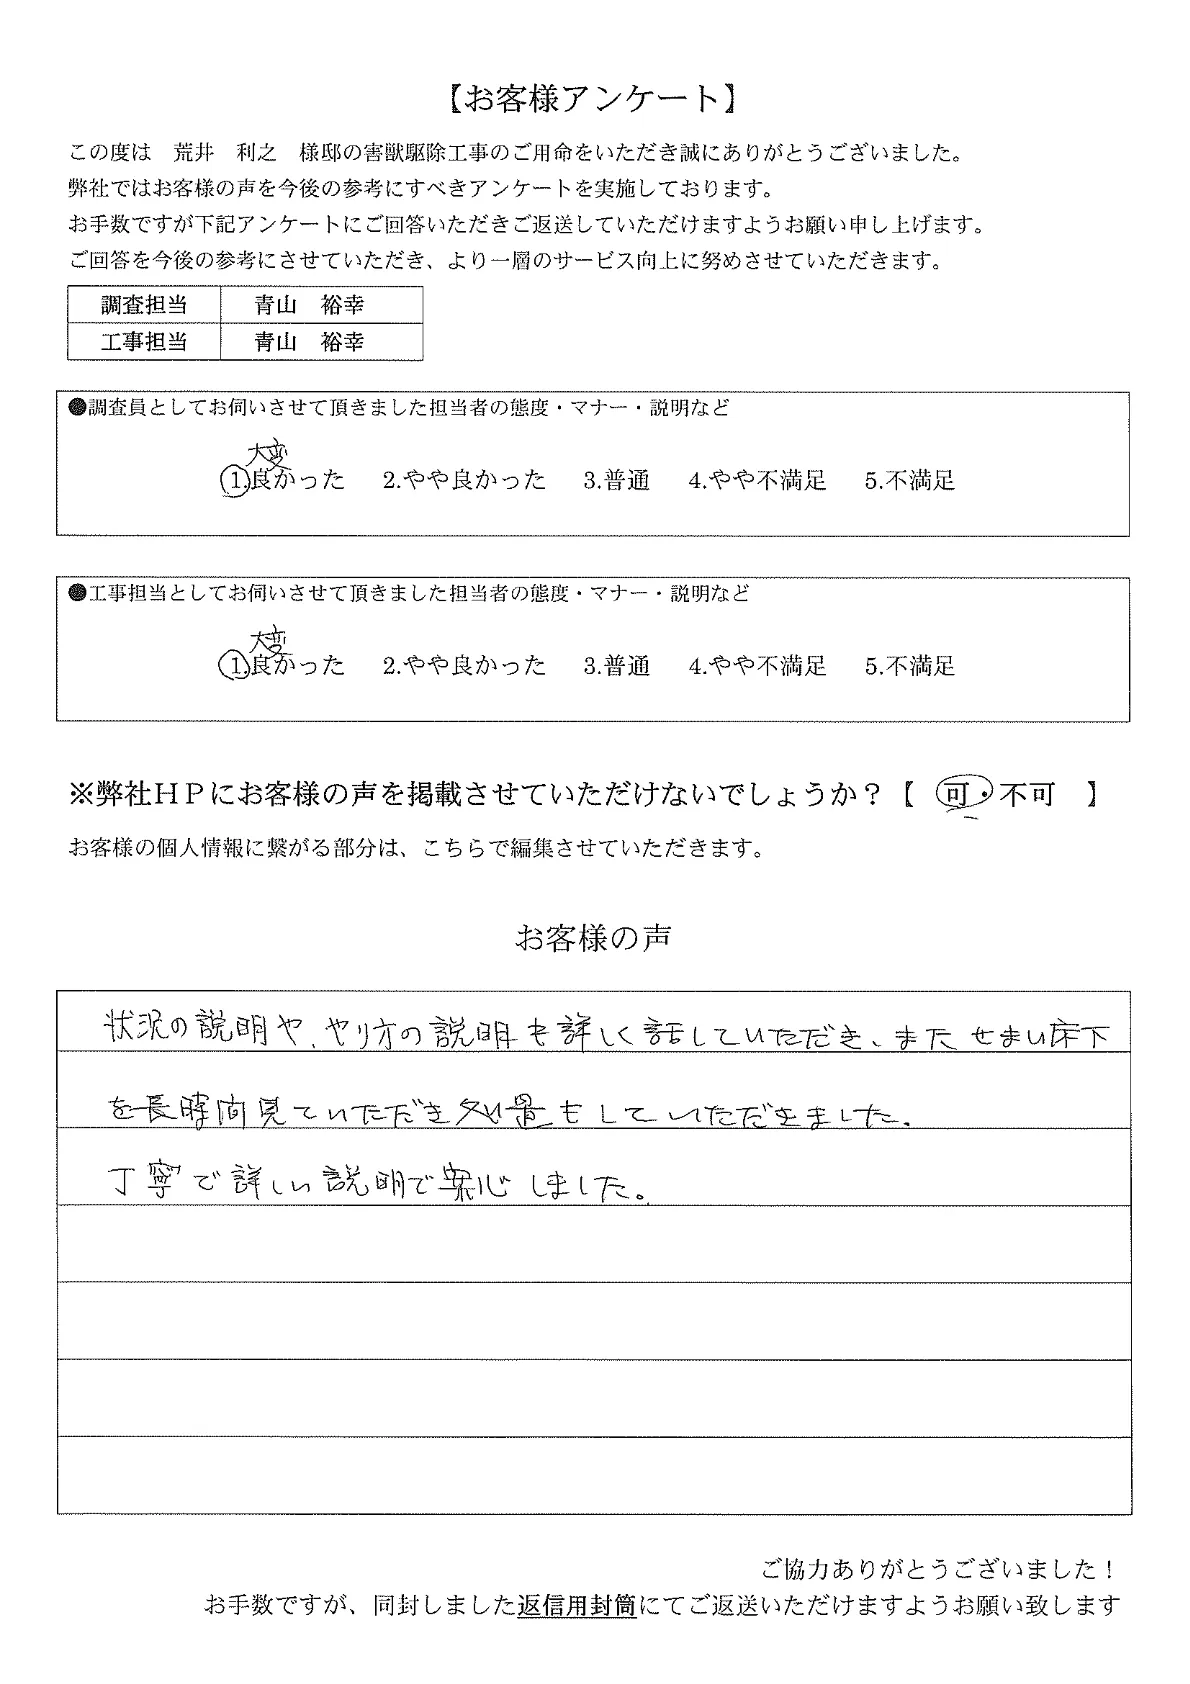 【お客様アンケート】
この度は　荒井　利之　様邸の害獣駆除工事のご用命をいただき誠にありがとうございました。
弊社ではお客様の声を今後の参考にすべきアンケートを実施しております。
お手数ですが下記アンケートにご回答いただきご返送していただけますようお願い申し上げます。
ご回答を今後の参考にさせていただき、より一層のサービス向上に努めさせていただきます。
調査担当　青山　裕幸
工事担当　青山　裕幸
●調査員としてお伺いさせて頂きました担当者の態度・マナー・説明など
大変
1.良かった　2.やや良かった　3.普通　4.やや不満足　5.不満足
●工事担当としてお伺いさせて頂きました担当者の態度・マナー・説明など
大変
1.良かった　2.やや良かった　3.普通　4.やや不満足　5.不満足
※弊社ＨＰにお客様の声を掲載させていただけないでしょうか？【　可・不可　】
お客様の個人情報に繋がる部分は、こちらで編集させていただきます。
お客様の声
状況の説明や、やり方の説明も詳しく話していただき、またせまい床下
を長時間見ていただき処置もしていただきました。
丁寧で詳しい説明で安心しました。
ご協力ありがとうございました！
お手数ですが、同封しました返信用封筒にてご返送いただけますようお願い致します